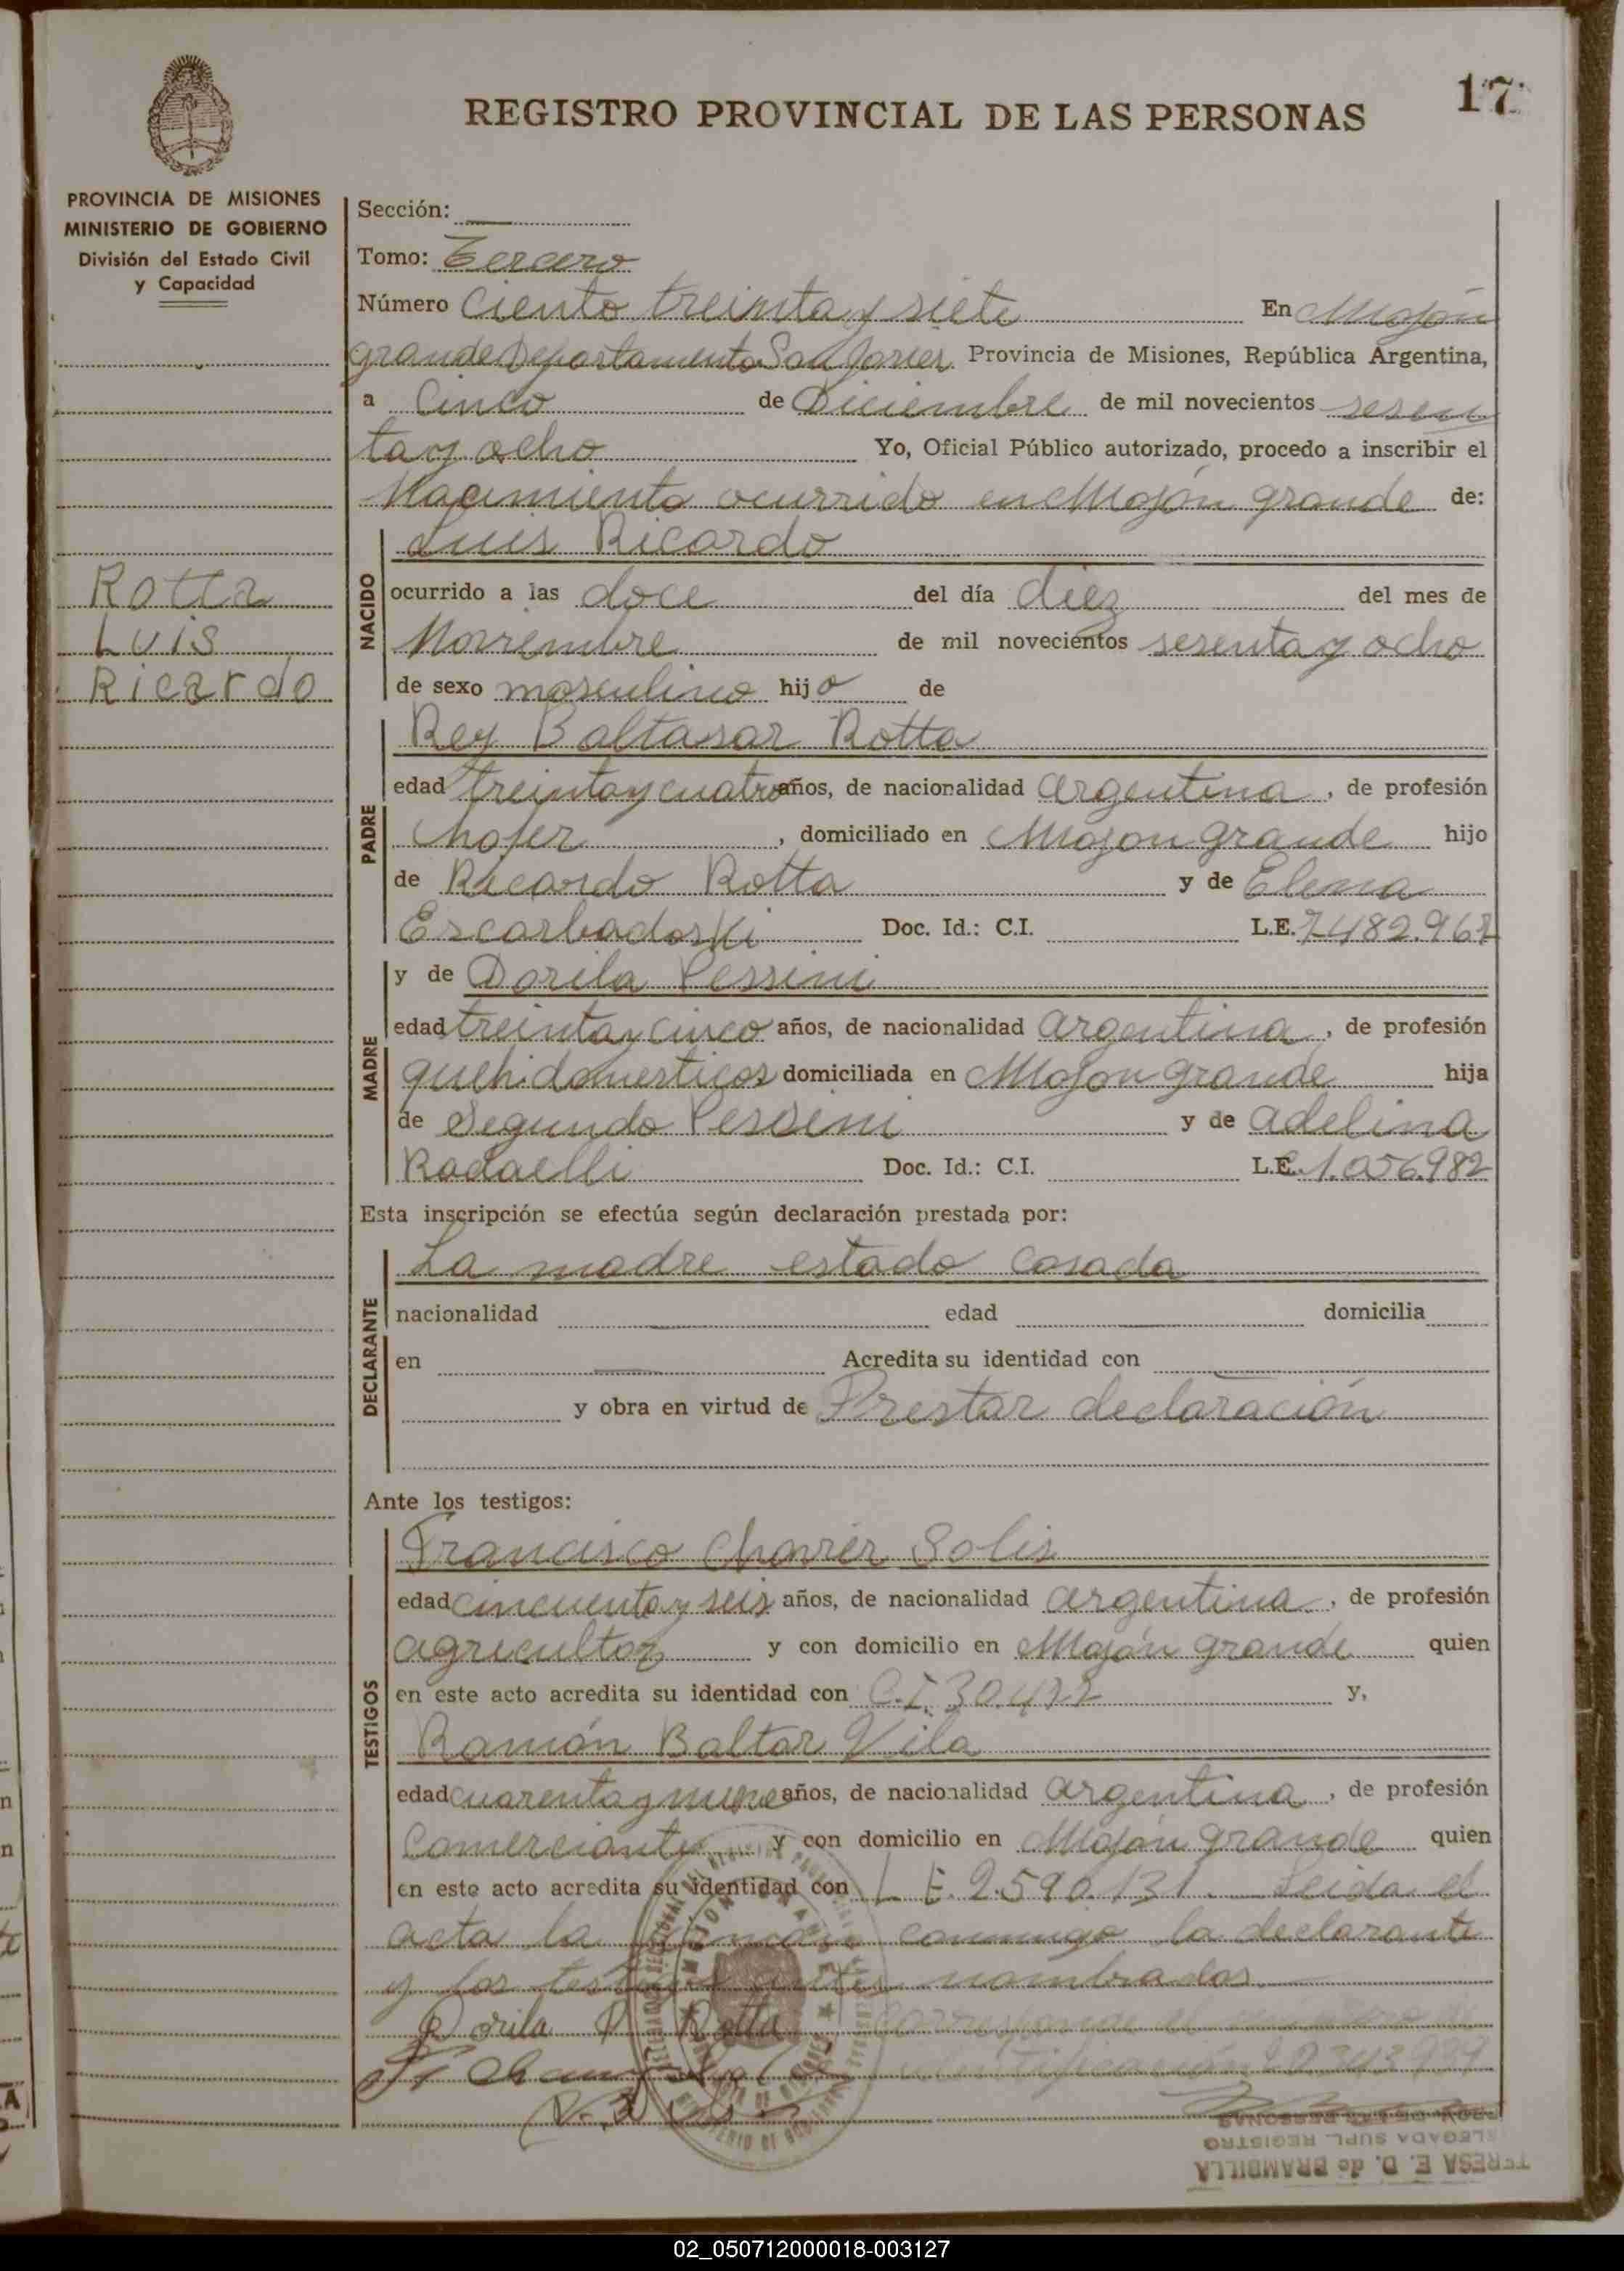 17
REGISTRO PROVINCIAL DE LAS PERSONAS
PROVINCIA DE MISIONES
MINISTERIO DE GOBIERNO
División del Estado Civil
y Capacidad
Rotta
Luis
Ricardo
Sección:
Tomo: Tercero
Número Ciento treinta y siete En Mojón
grande Departamento San Javier. Provincia de Misiones, República Argentina,
a Cinco de Diciembre de mil novecientos sesen
ta y ocho Yo, Oficial Público autorizado, procedo a inscribir el
Nacimiento ocurrido en Mojón grande de:
NACIDO
Luis Ricardo
ocurrido a las doce del día diez del mes de
Noviembre de mil novecientos sesenta y ocho
de sexo masculino hijo de
PADRE
Rey Baltasar Rotta
edad treinta y cuatro años, de nacionalidad argentina, de profesión
Chofer, domiciliado en Mojon grande hijo
de Ricardo Rotta y de Elena
Escarbadoski Doc. Id.: C.I. L.E. 7.482.967
MADRE
y de Dorila Pessini
edad treinta y cinco años, de nacionalidad argentina, de profesión
queh. domesticos domiciliada en Mojon grande hija
de Segundo Pessini y de Adelina
Radaelli Doc. Id.: C.I. L.E. 1.056.982
Esta inscripción se efectúa según declaración prestada por:
DECLARANTE
La madre estado casada
nacionalidad edad domicilia
en Acredita su identidad con
y obra en virtud de Prestar declaración
Ante los testigos:
TESTIGOS
Francisco Chavier Solis
edad cincuenta y seis años, de nacionalidad argentina, de profesión
agricultor y con domicilio en Mojón grande quien
en este acto acredita su identidad con C.I. y,
Ramón Baltar Vila
edad cuarenta y nueve años, de nacionalidad argentina, de profesión
Comerciante y con domicilio en Mojón grande quien
en este acto acredita su identidad con L E. 2.590.131. Leida el
acta la firman conmigo la declarante
y los testigos antes nombrados.
Dorila P Rotta
TERESA E. D. de BRAMBILLA
DELEGADA SUPL. REGISTRO
PROV. DE LAS PERSONAS
02_050712000018-003127